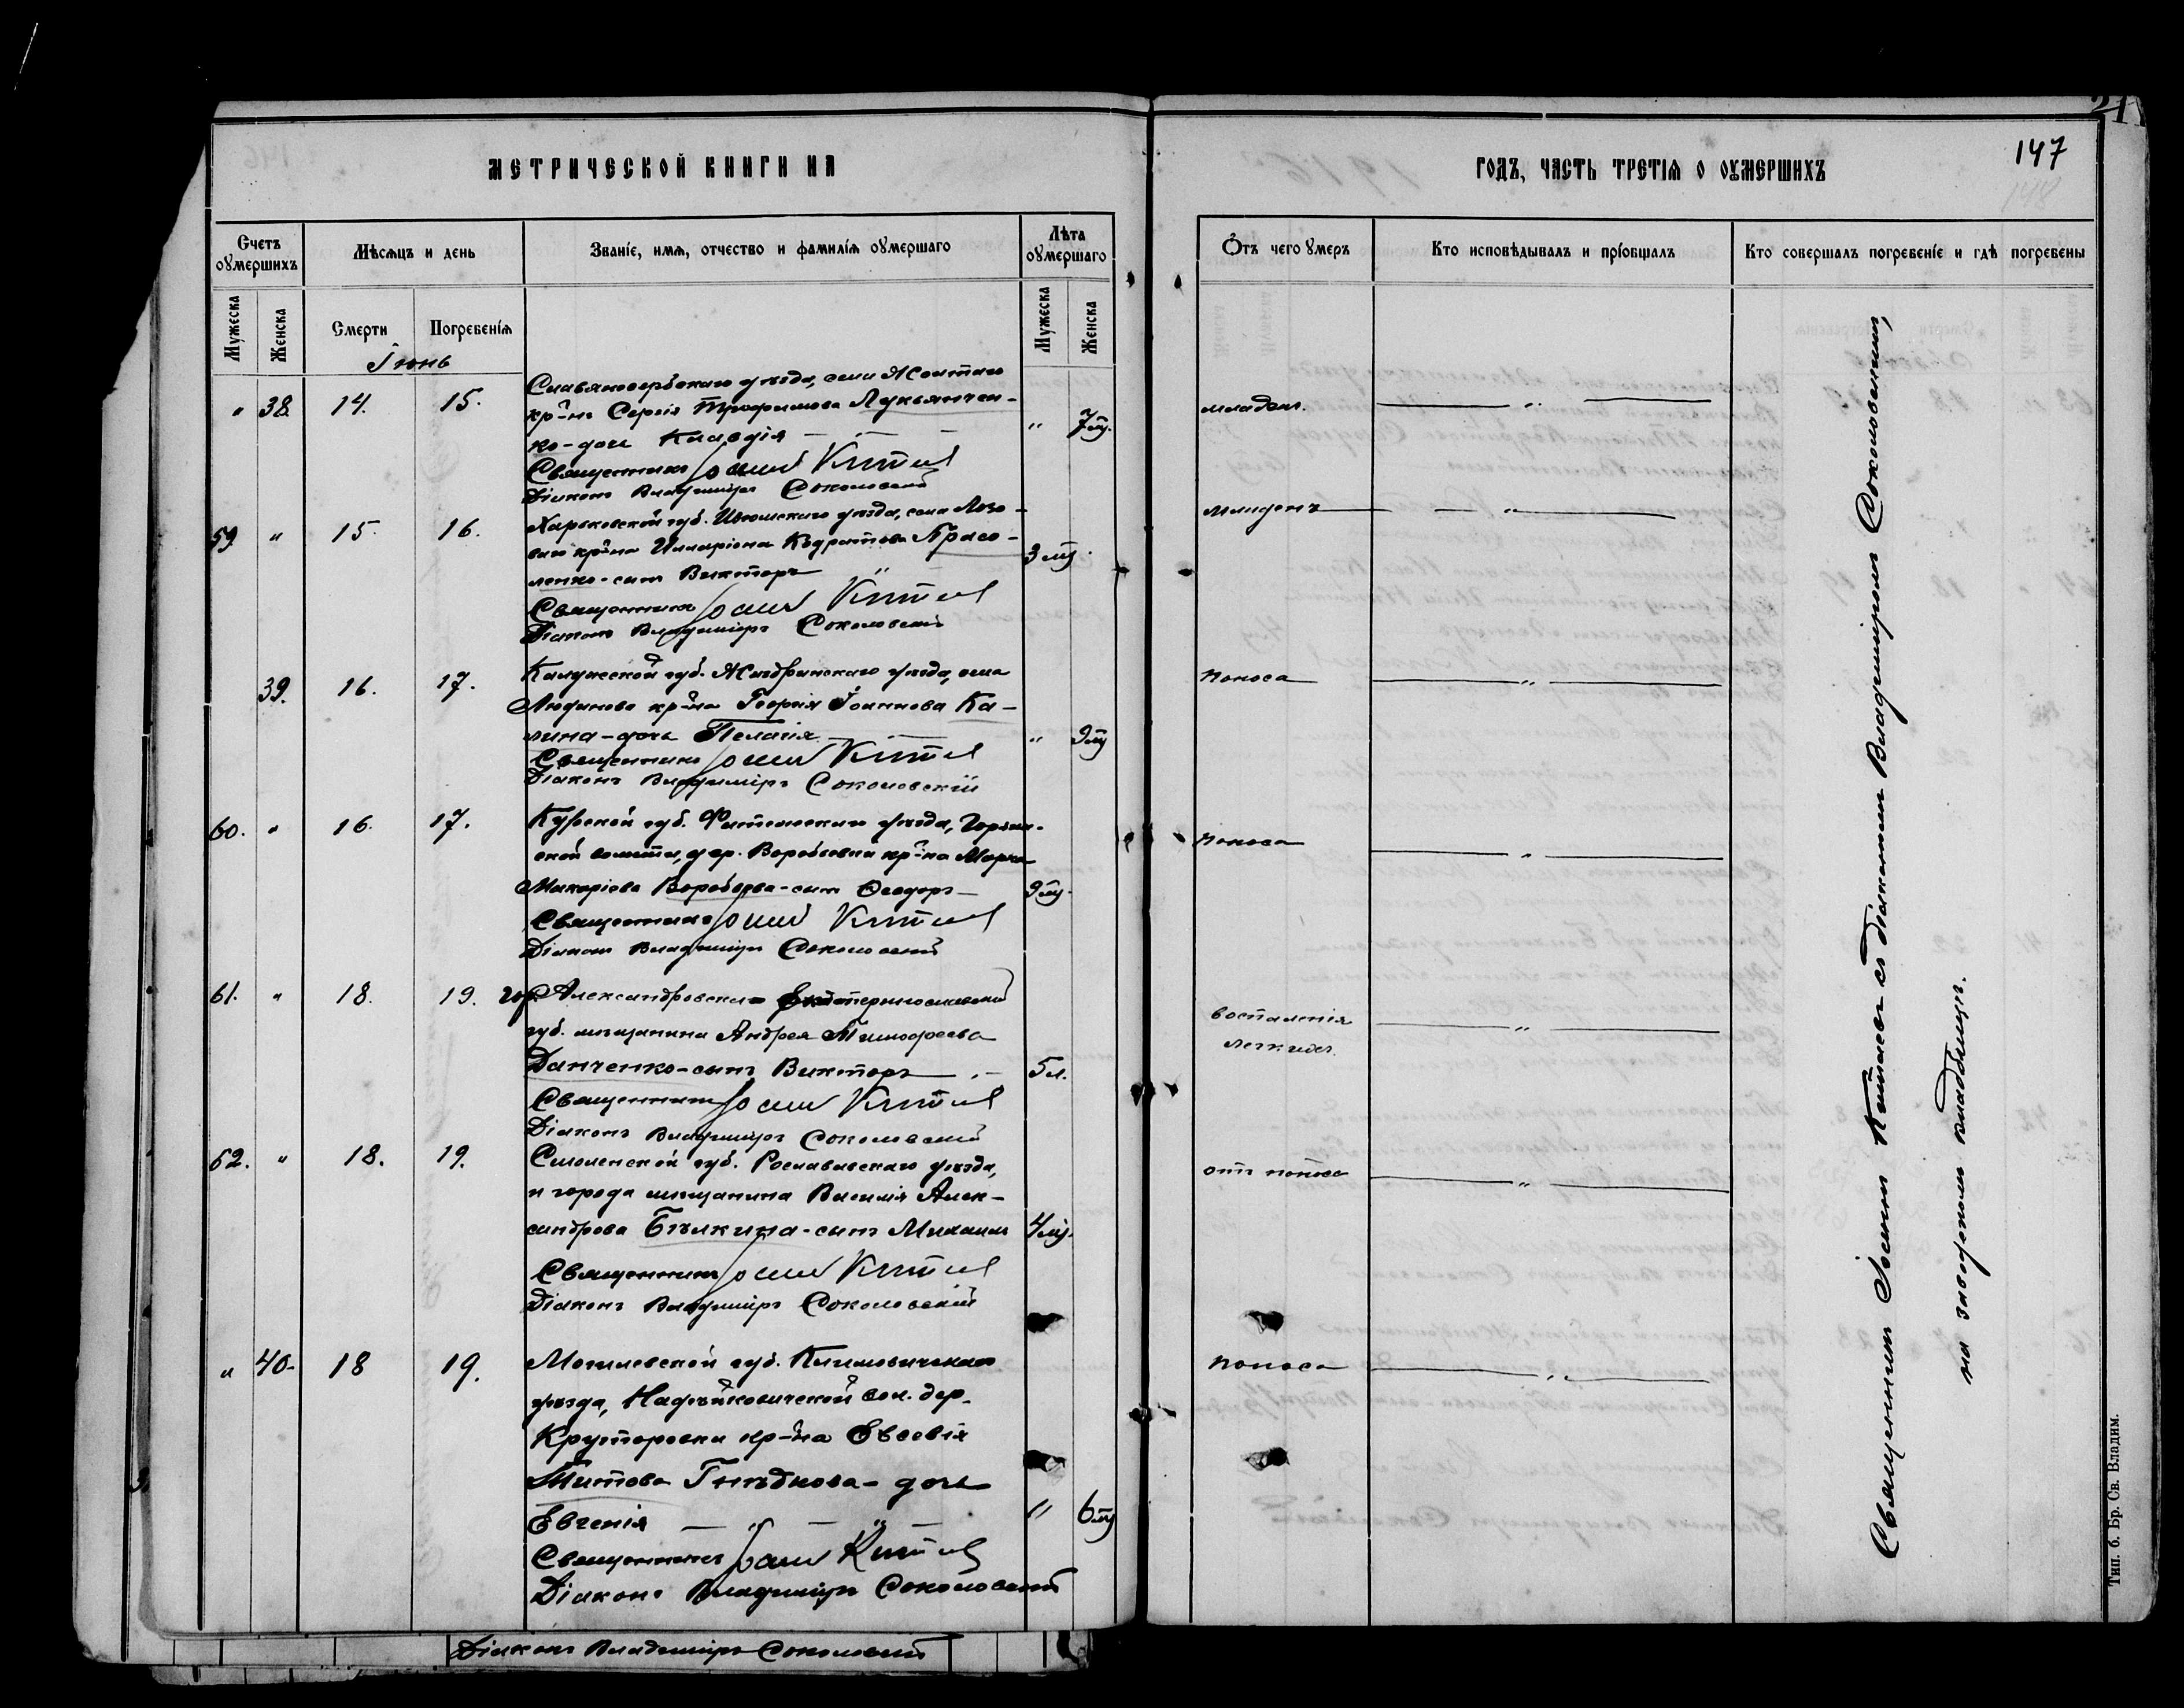 МЕТРИЧЕСКОЙ КНИГИ НА
ГОДЪ, ЧАСТЬ ТРЕТІЯ О ОУМЕРШИХЪ
147
Счетъ оумершихъ
Мѣсяцъ и день
Званіе, имя, отчество и фамилія оумершаго
Лѣта оумершаго
Отъ чего умеръ
Кто исповѣдывалъ и пріобщалъ
Кто совершалъ погребеніе и гдѣ погребены
Мужеска
Женска
Смерти
Погребенія
Мужеска
Женска
Іюнь
Славяносербскаго уѣзда, села Жолтаго
" 38. 14. 15. кр-на Сергія Трофимова Лукьянчен- " 7 м. младенч. — " —
ко-дочь Клавдія — " —
Священникъ Іосифъ Китаевъ
Діаконъ Владиміръ Соколовскій
59. " 15. 16. Харьковской губ. Изюмскаго уѣзда, села Лозо- младенч — " —
ваго кр-на Илларіона Кодратова Прасо- 3 м.
ленко-сынъ Викторъ "
Священникъ Іосифъ Китаевъ
Діаконъ Владиміръ Соколовскій
39. 16. 17. Калужской губ. Жиздринскаго уѣзда, села поноса — " —
Людиново кр-на Георгія Іоаннова Ка-
лина-дочь Пелагія — " 9 м.
Священникъ Іосифъ Китаевъ
Діаконъ Владиміръ Соколовскій
60. " 16. 17. Курской губ. Фатежскаго уѣзда, поноса — " —
ской волости, дер. Воробьевки кр-на Марка
Макаріова Воробьева-сынъ Ѳеодоръ — 9 м.
Священникъ Іосифъ Китаевъ
Діаконъ Владиміръ Соколовскій
61. " 18. 19. гор. Александровска Екатеринославской воспаленія — " —
губ. мѣщанина Андрея Тимофеева легкихъ.
Данченко-сынъ Викторъ — " — 5 л.
Священникъ Іосифъ Китаевъ
Діаконъ Владиміръ Соколовскій
62. " 18. 19. Смоленской губ. Рославльскаго уѣзда, отъ поноса — " —
и города мѣщанина Василія Алек-
сандрова Бѣлкина-сынъ Михаилъ 4 м.
Священникъ Іосифъ Китаевъ
Діаконъ Владиміръ Соколовскій
" 40. 18 19. Могилевской губ. Климовичскаго поноса — " —
уѣзда, Надѣйковичской вол. дер.
кр-на Евсевія
Титова Гнѣдкова- дочь
Евгенія — " — " — " 6 м.
Священникъ Іосифъ Китаевъ
Діаконъ Владиміръ Соколовскій
Священникъ Іосифъ Китаевъ съ діакономъ Владиміромъ Соколовскимъ,
на заводскомъ кладбищѣ.
Діаконъ Владиміръ Соколовскій
Тип. б. Бр. Св. Владим.